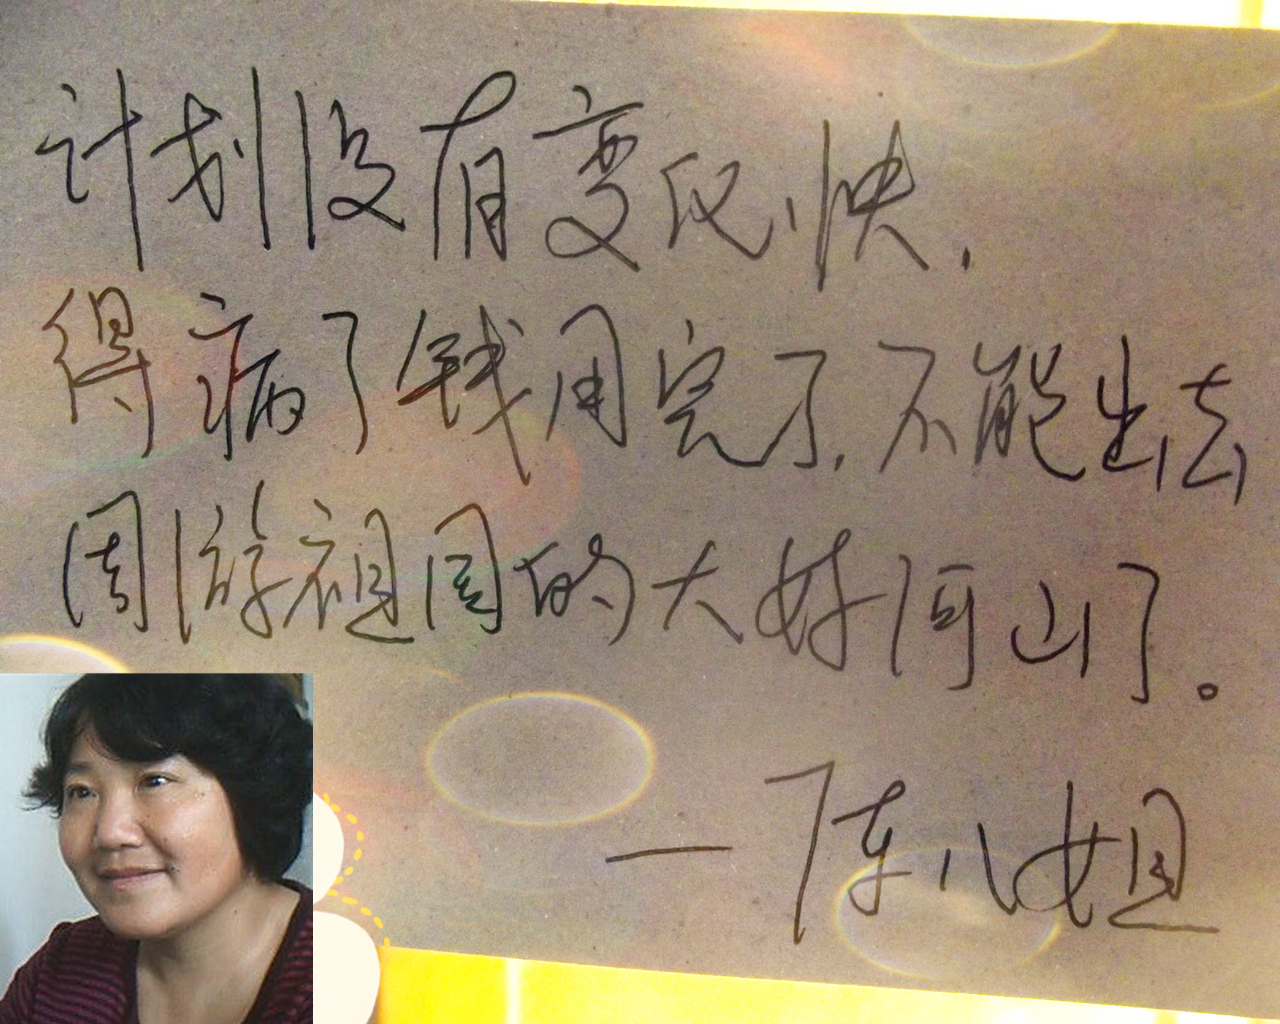 计划没有变化快,
得病了钱用完了,不能出去
周游祖国的大好河山了。
—陈八姐